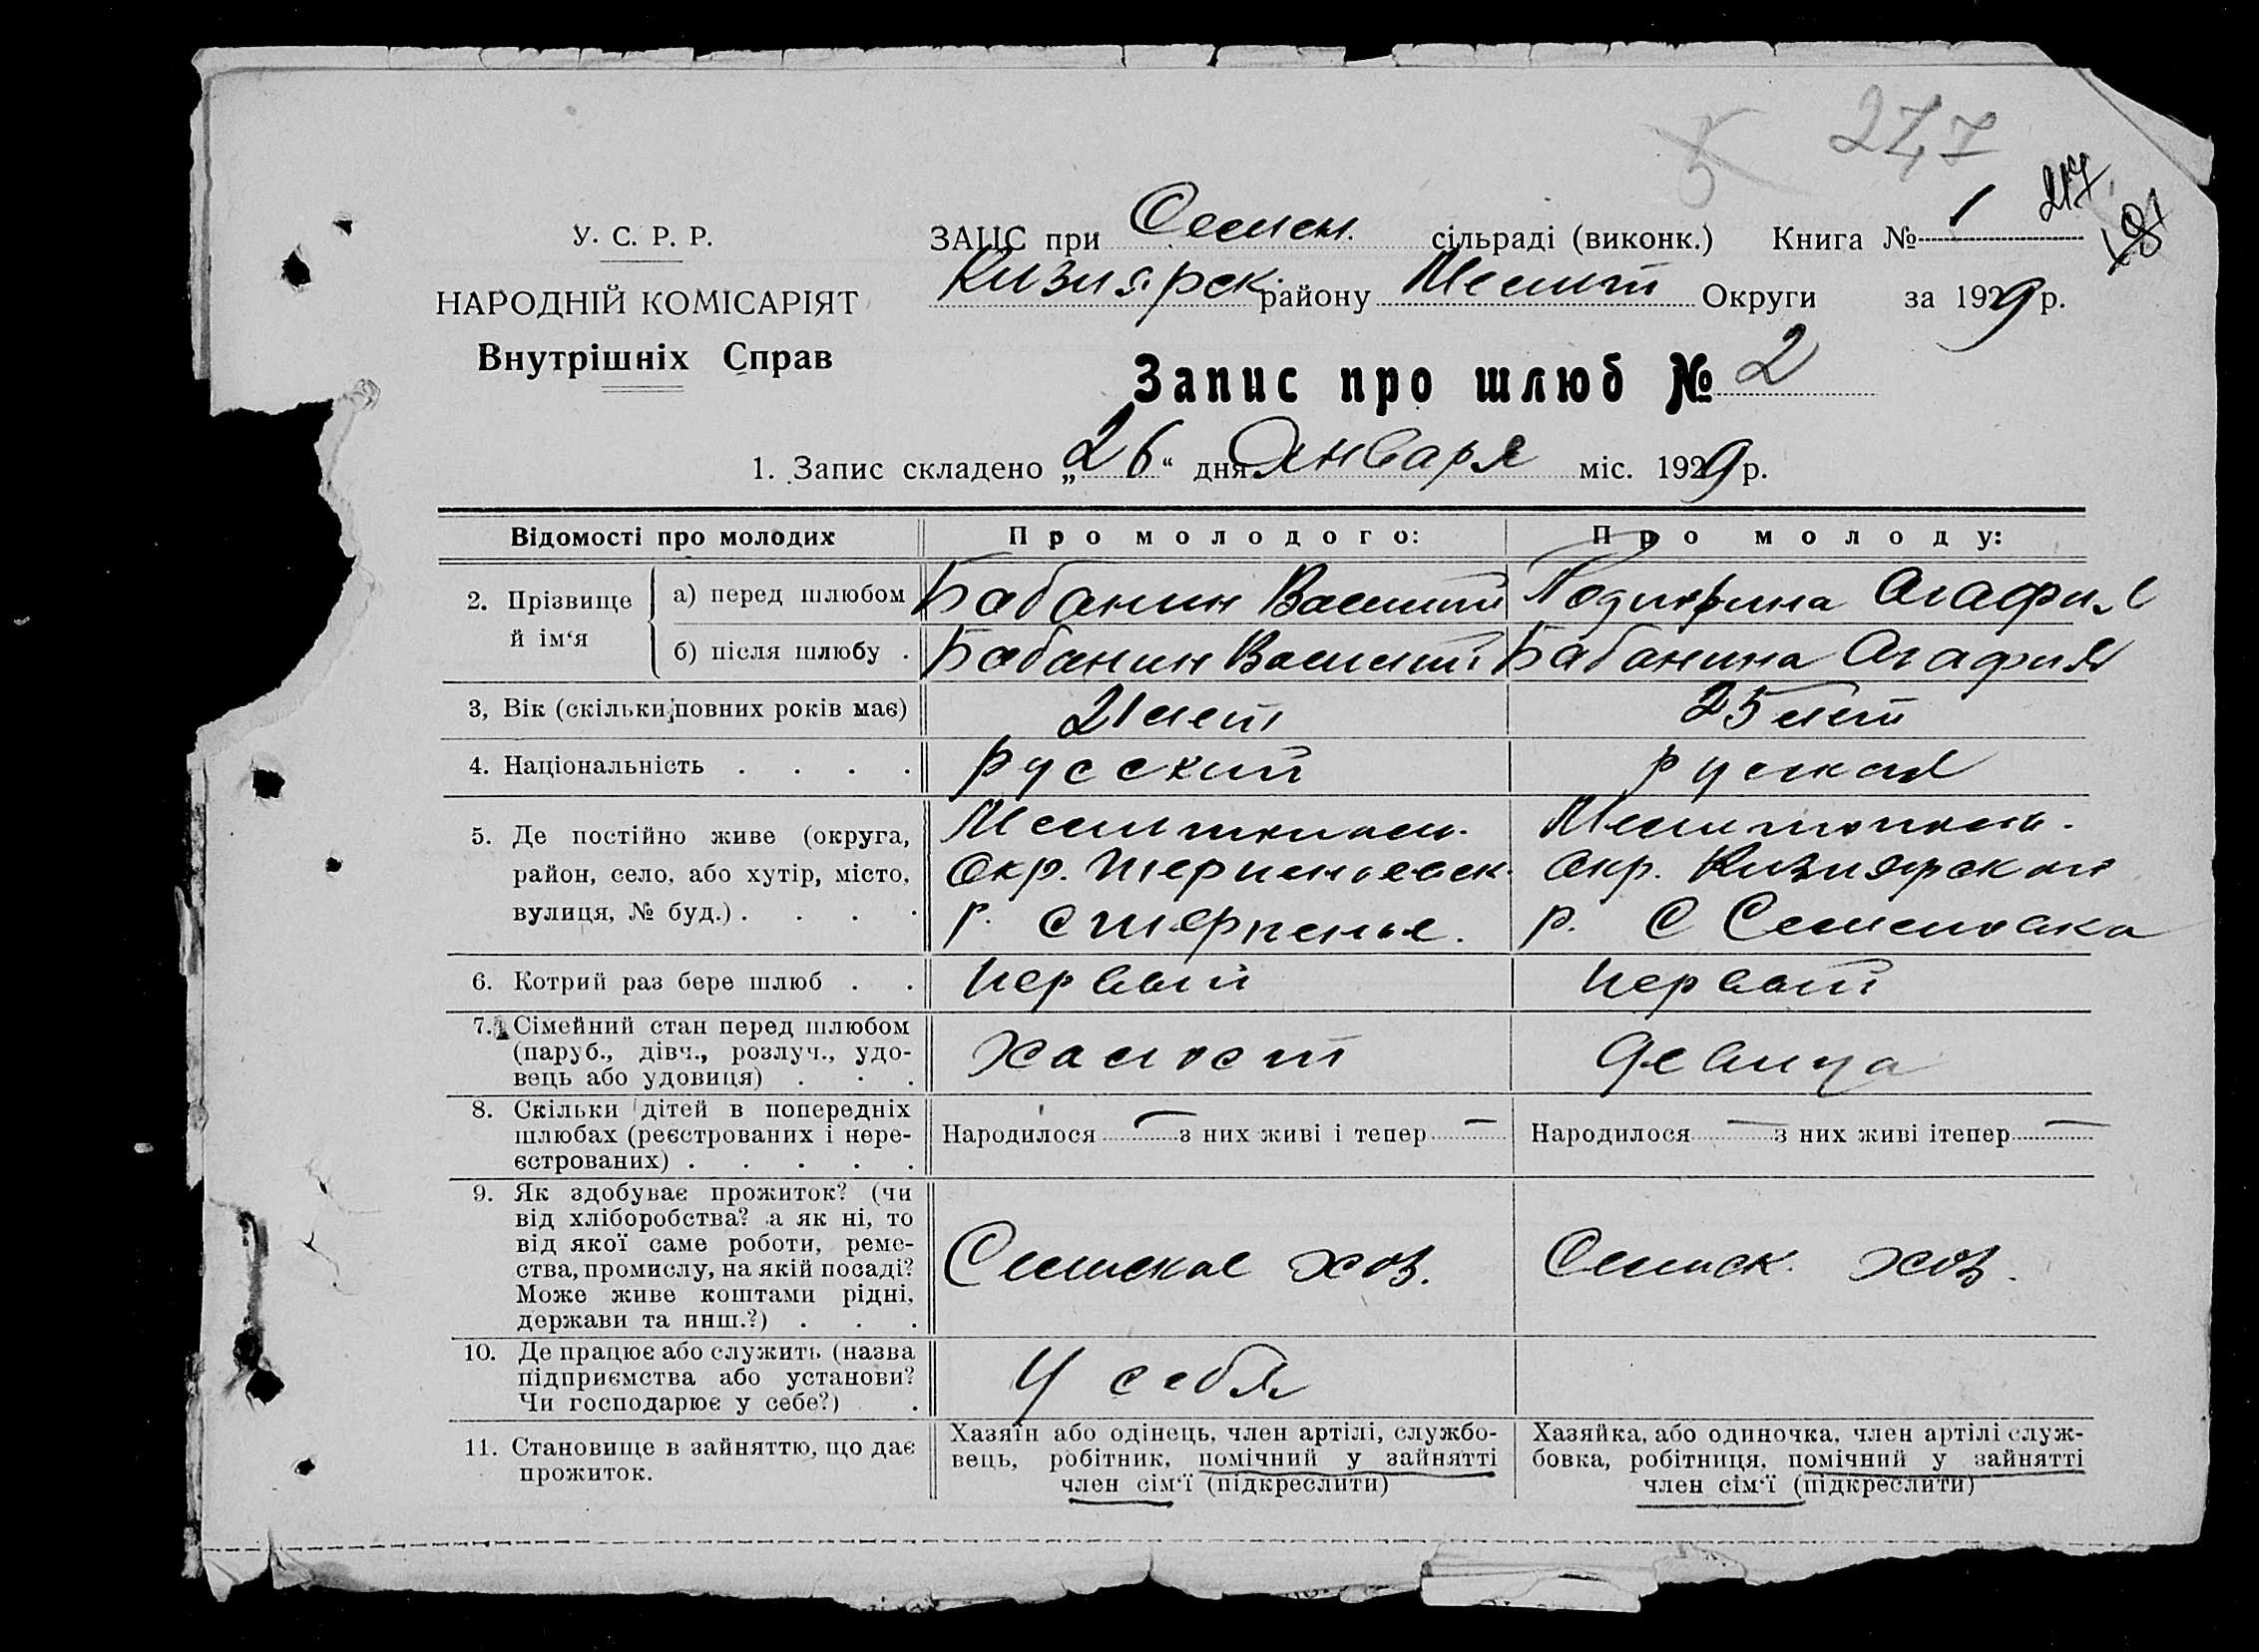 247
5
217
У. С. Р. Р.
НАРОДНІЙ КОМІСАРІЯТ
Внутрішніх Справ
ЗАГС при Семен. сільраді (виконк.) Книга № 1
Кизиярск. району Мелит Округи за 1929 р.
Запис про шлюб № 2
1. Запис складено „26“ дня Января міс. 1929 р.
Відомості про молодих
Про молодого:
Про молоду:
2. Прізвище й ім‘я
а) перед шлюбом
Бабанин Василий
Агафия
б) після шлюбу .
Бабанин Василий
Бабанина Агафия
3, Вік (скільки повних років має)
21 лет
25 лет
4. Національність . . . .
русский
руская
5. Де постійно живе (округа,
район, село, або хутір, місто,
вулиця, № буд.) . . . .
Мелитопол.
Окр. Терпеньевск.
р. с Терпенье.
Мелитопол.
Окр. Кизиярской
р. С Семеновка
6. Котрий раз бере шлюб . .
первый
первый
7. Сімейний стан перед шлюбом
(паруб., дівч., розлуч., удо-
вець або удовиця) . . .
холост
девица
8. Скільки дітей в попередніх
шлюбах (реєстрованих і нере-
єстрованих) . . . . .
Народилося — з них живі і тепер —
Народилося — з них живі ітепер —
9. Як здобуває прожиток? (чи
від хліборобства? а як ні, то
від якої саме роботи, реме-
ства, промислу, на якій посаді?
Може живе коштами рідні,
держави та инш.?) . . .
Сельское хоз.
Сельск. хоз.
10. Де працює або служить (назва
підприємства або установи?
Чи господарює у себе?) .
У себя
11. Становище в зайняттю, що дає
прожиток.
Хазяїн або одінець, член артілі, службо-
вець, робітник, помічний у зайнятті
член сім‘ї (підкреслити)
Хазяйка, або одиночка, член артілі служ-
бовка, робітниця, помічний у зайнятті
член сім‘ї (підкреслити)